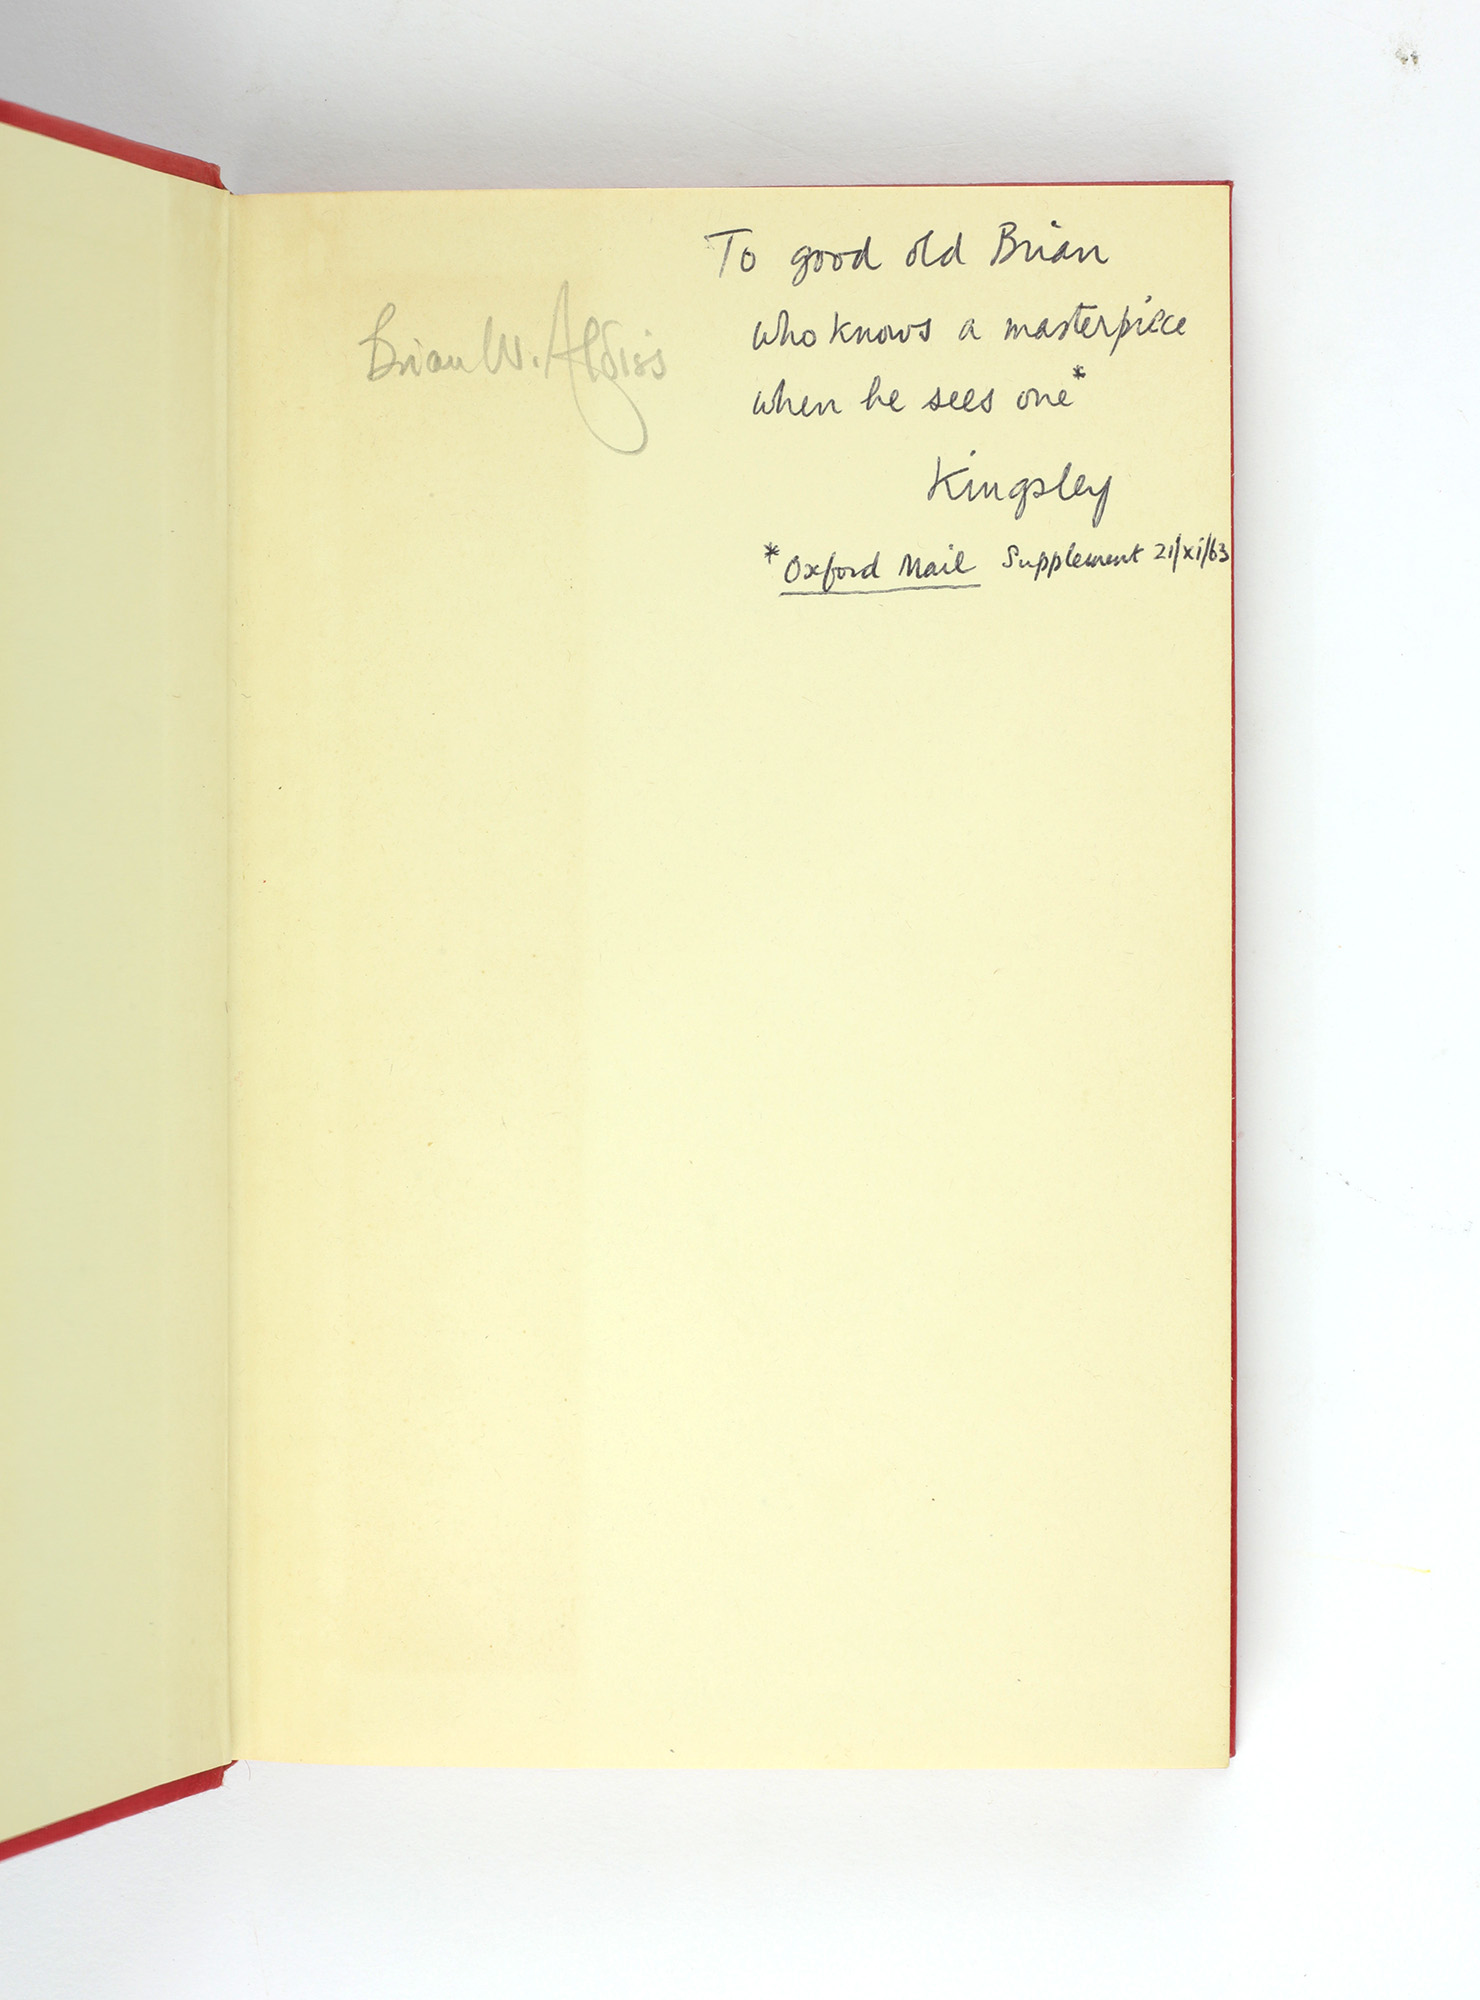 Brian W. Aldiss
To good old Brian
who knows a masterpiece
when he sees one*
Kingsley
* Oxford Mail Supplement 21/xi/63